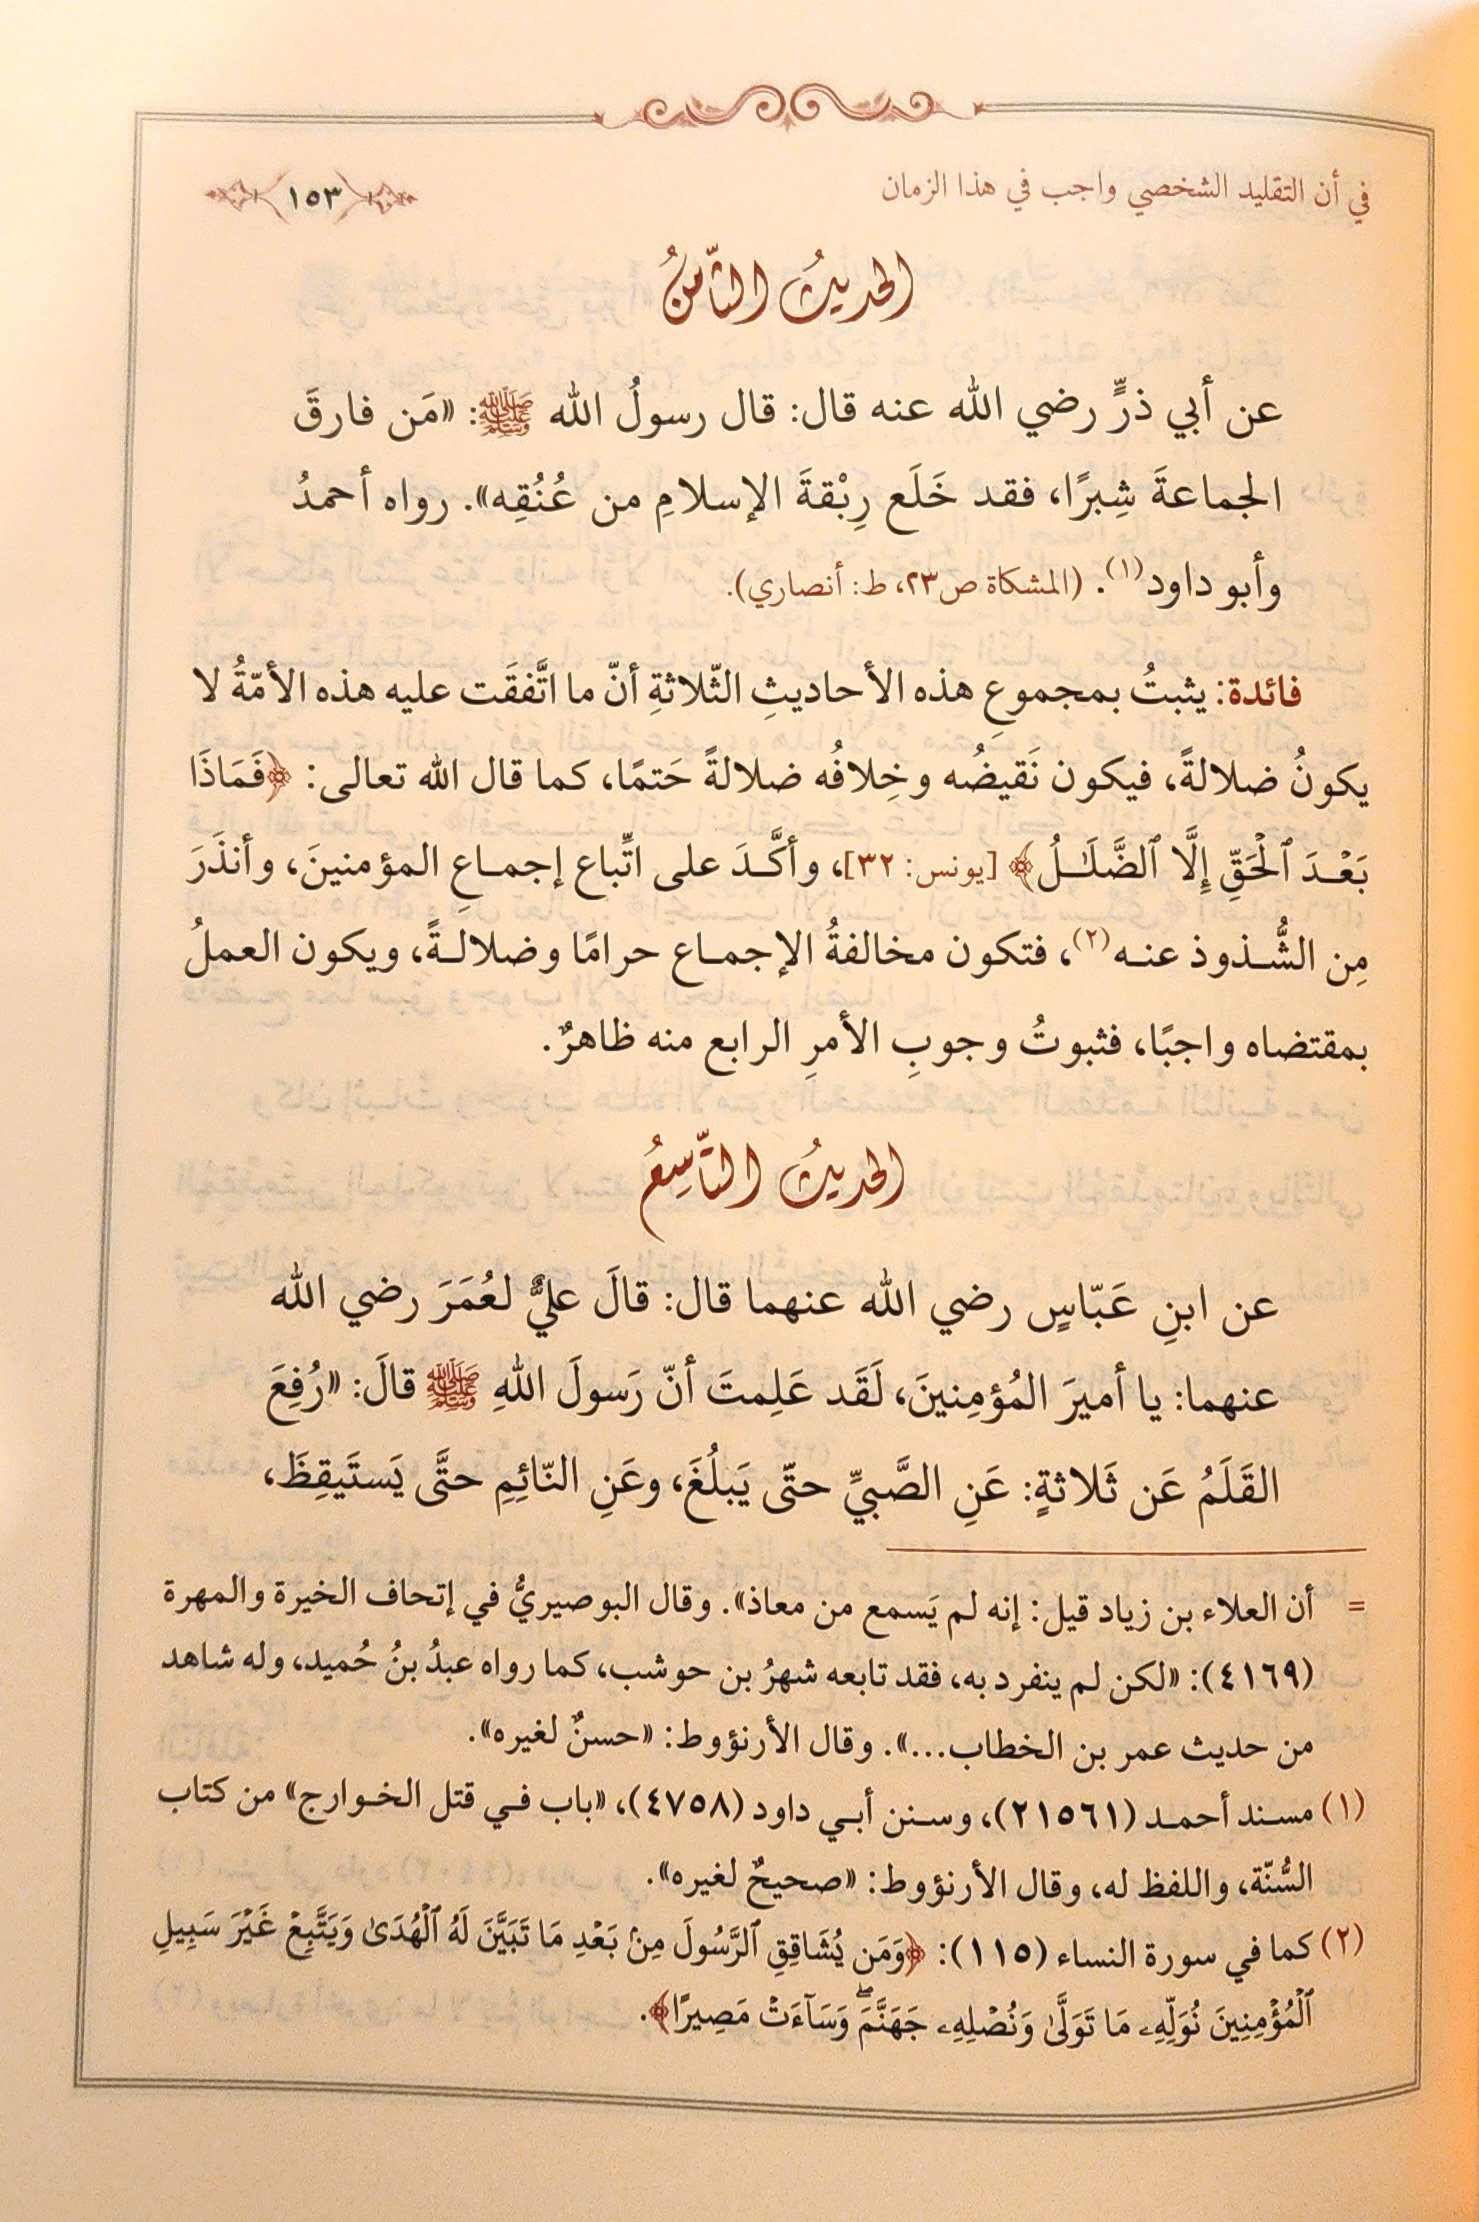 في أن التقليد الشخصي واجب في هذا الزمان
١٥٣
الحديثُ الثّامنُ
عن أبي ذرٍّ رضي الله عنه قال: قال رسولُ الله ﷺ: «مَن فارقَ
الجماعةَ شِبرًا، فقد خَلَع رِبْقةَ الإسلامِ من عُنُقِه». رواه أحمدُ
وأبو داود(١). (المشكاة ص٢٣، ط: أنصاري).
فائدة: يثبتُ بمجموعِ هذه الأحاديثِ الثّلاثةِ أنّ ما اتَّفقَت عليه هذه الأمّةُ لا
يكونُ ضلالةً، فيكون نَقيضُه وخِلافُه ضلالةً حَتمًا، كما قال الله تعالى: ﴿فَمَاذَا
بَعْدَ ٱلْحَقِّ إِلَّا ٱلضَّلَـٰلُ﴾ [يونس: ٣٢]، وأكَّدَ على اتِّباع إجماعِ المؤمنينَ، وأنذَرَ
مِن الشُّذوذ عنه(٢)، فتكون مخالفةُ الإجماع حرامًا وضلالةً، ويكون العملُ
بمقتضاه واجبًا، فثبوتُ وجوبِ الأمرِ الرابع منه ظاهرٌ.
الحديثُ التّاسِعُ
عن ابنِ عَبّاسٍ رضي الله عنهما قال: قالَ عليٌّ لعُمَرَ رضي الله
عنهما: يا أميرَ المُؤمِنينَ، لَقَد عَلِمتَ أنّ رَسولَ اللهِ ﷺ قالَ: «رُفِعَ
القَلَمُ عَن ثَلاثةٍ: عَنِ الصَّبيِّ حتّى يَبلُغَ، وعَنِ النّائِمِ حتَّى يَستَيقِظَ،
= أن العلاء بن زياد قيل: إنه لم يَسمع من معاذ». وقال البوصيريُّ في إتحاف الخيرة والمهرة
(٤١٦٩): «لكن لم ينفرد به، فقد تابعه شهرُ بن حوشب، كما رواه عبدُ بنُ حُميد، وله شاهد
من حديث عمر بن الخطاب...». وقال الأرنؤوط: «حسنٌ لغيره».
(١) مسند أحمد (٢١٥٦١)، وسنن أبي داود (٤٧٥٨)، «باب في قتل الخوارج» من كتاب
السُّنّة، واللفظ له، وقال الأرنؤوط: «صحيحٌ لغيره».
(٢) كما في سورة النساء (١١٥): ﴿وَمَن يُشَاقِقِ ٱلرَّسُولَ مِنۢ بَعْدِ مَا تَبَيَّنَ لَهُ ٱلْهُدَىٰ وَيَتَّبِعْ غَيْرَ سَبِيلِ
ٱلْمُؤْمِنِينَ نُوَلِّهِۦ مَا تَوَلَّىٰ وَنُصْلِهِۦ جَهَنَّمَ ۖ وَسَآءَتْ مَصِيرًا﴾.